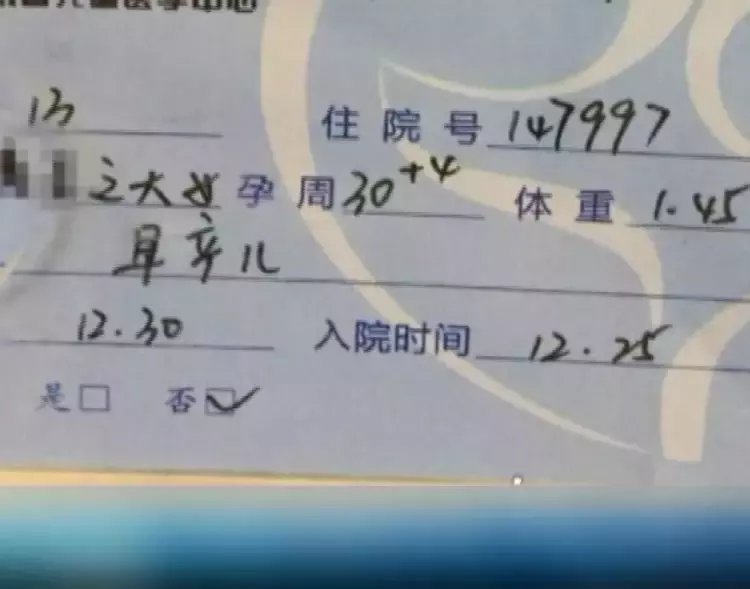 儿童医学中心
13 住院号 147997
之大女 孕周 30+4 体重 1.45
早产儿
12.30 入院时间 12.25
是□ 否☑